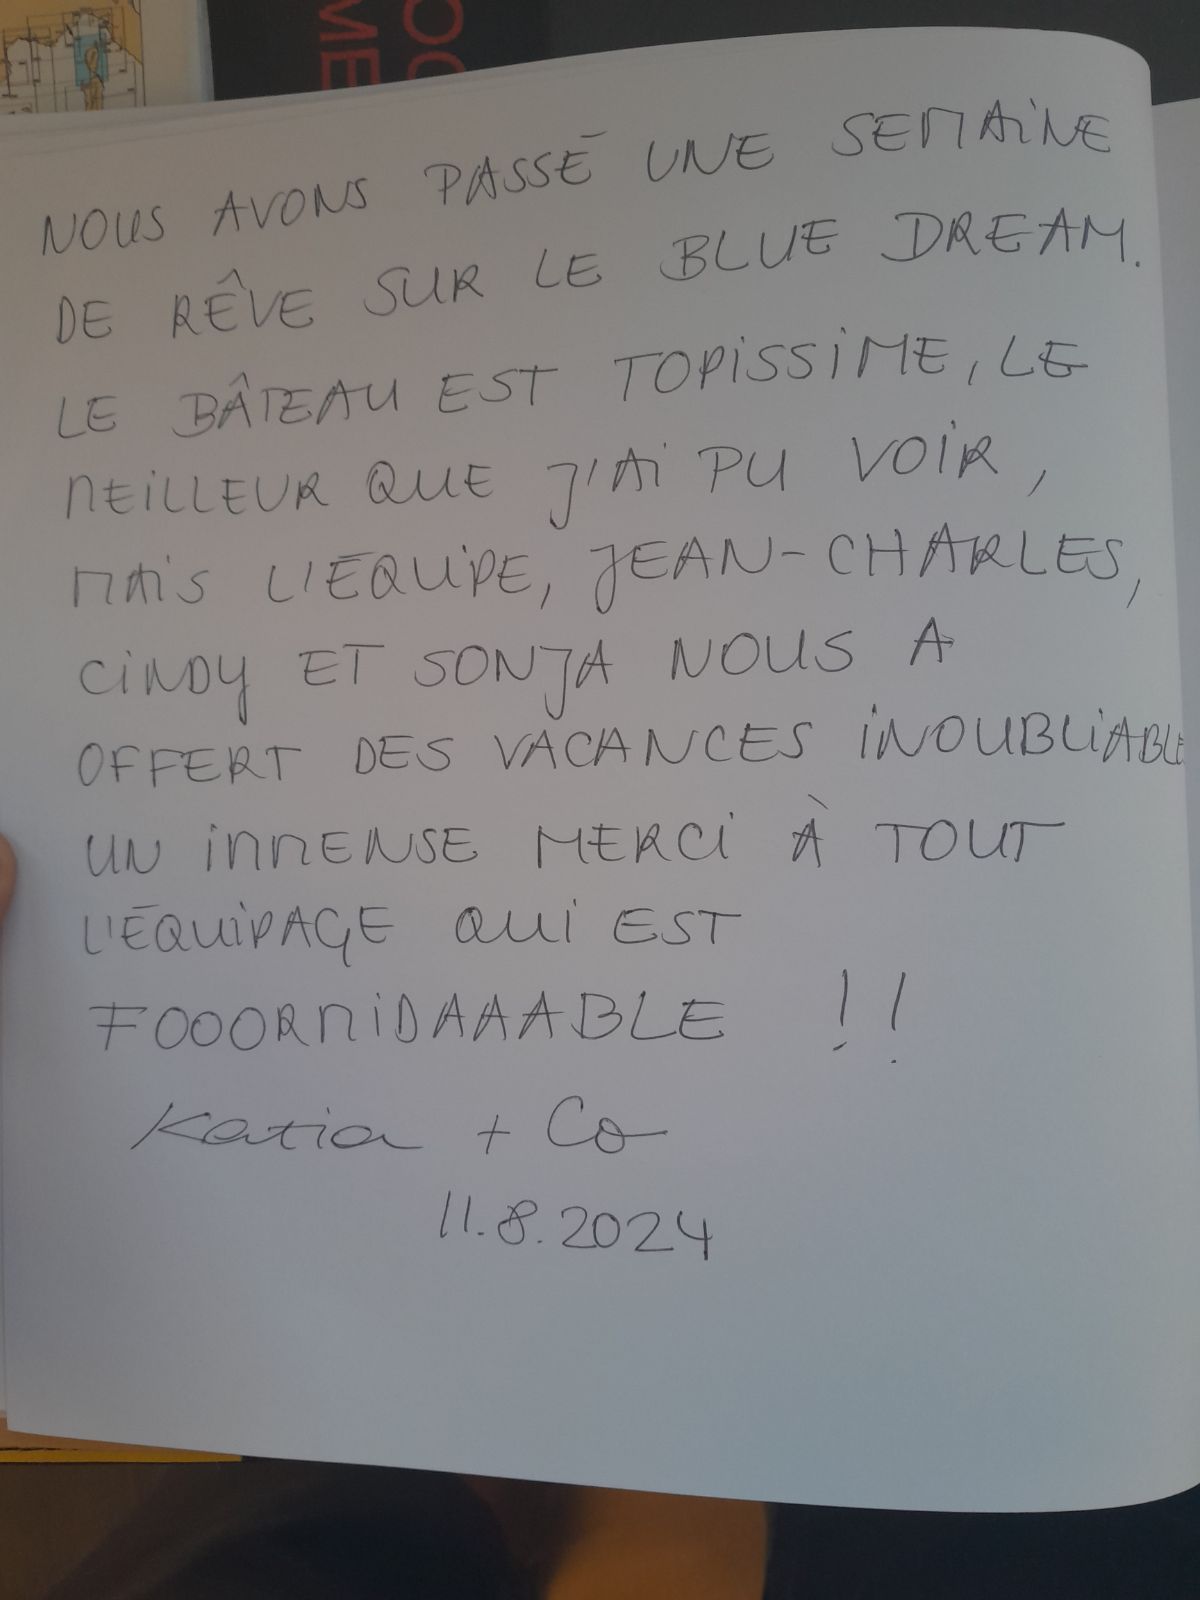 OC
ME
NOUS AVONS PASSÉ UNE SEMAINE
DE RÊVE SUR LE BLUE DREAM.
LE BÂTEAU EST TOPISSIME, LE
MEILLEUR QUE J'AI PU VOIR,
MAIS L'ÉQUIPE, JEAN-CHARLES,
CINDY ET SONJA NOUS A
OFFERT DES VACANCES INOUBLIABLE
UN IMMENSE MERCI À TOUT
L'ÉQUIPAGE QUI EST
FOOORMIDAAABLE !!
Katia + Co
11.8.2024